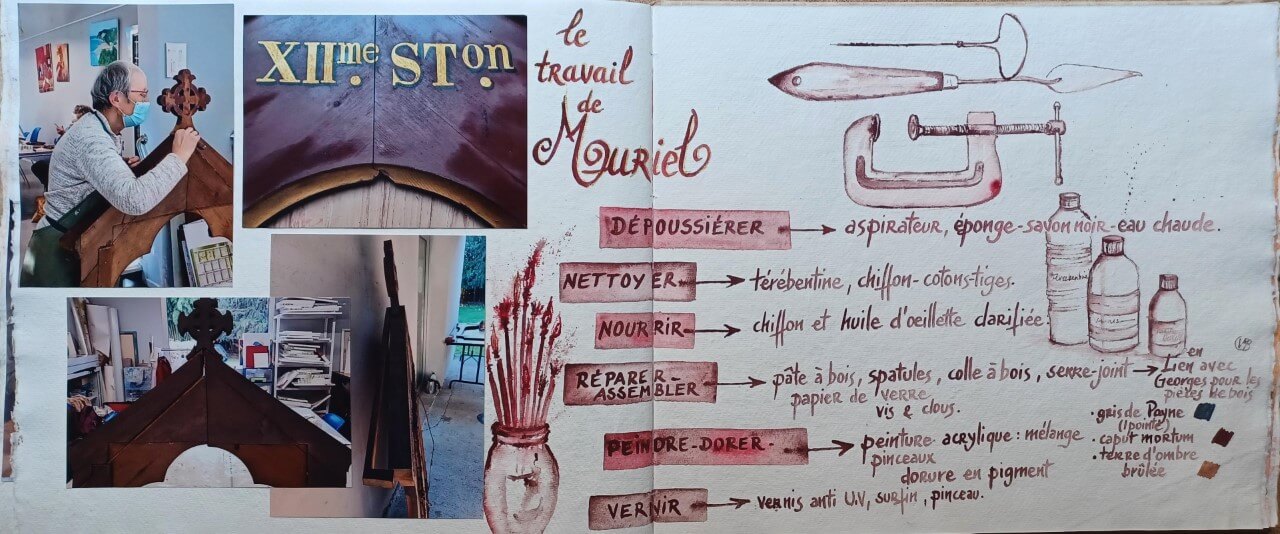 XIIme. STon.
le
travail
de
Muriel
DÉPOUSSIÉRER → aspirateur, éponge-savon noir-eau chaude.
NETTOYER → térébentine, chiffon-cotons-tiges.
NOURRIR → chiffon et huile d'oeillette clarifiée.
RÉPARER-
ASSEMBLER → pâte à bois, spatules, colle à bois, serre-joint → Lien avec
en
Georges pour les
pièces de bois
papier de verre
vis & clous.
PEINDRE-DORER- → peinture acrylique: mélange
pinceaux
dorure en pigment
• gris de Payne
(1 pointe)
• caput mortum
• terre d'ombre
brûlée
VERNIR → vernis anti U.V, surfin, pinceau.